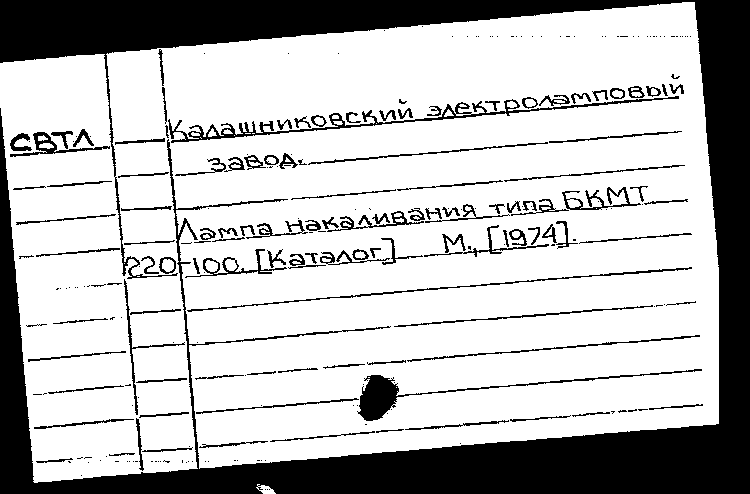 СВТЛ
Калашниковский электроламповый
завод.
Лампа накаливания типа БКМТ
220-100. [Каталог] М., [1974].